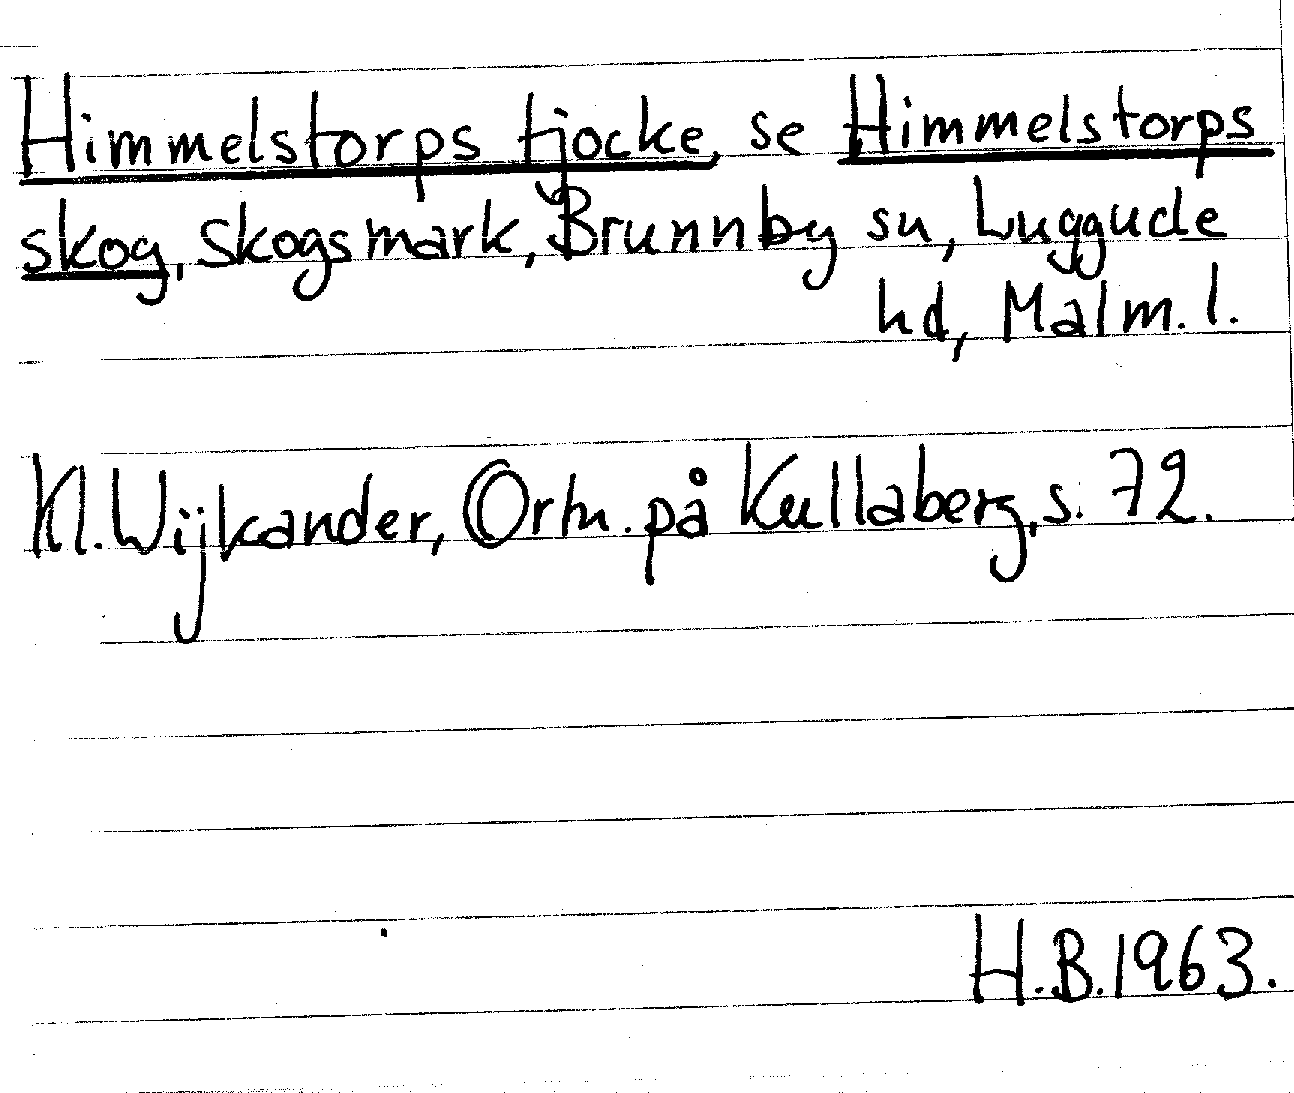 Himmelstorps tjocke, se Himmelstorps
skog, Skogsmark, Brunnby sn, Luggude
hd, Malm. l.
Kl. Wijkander, Ortn. på Kullaberg, s. 72.
H.B. 1963.